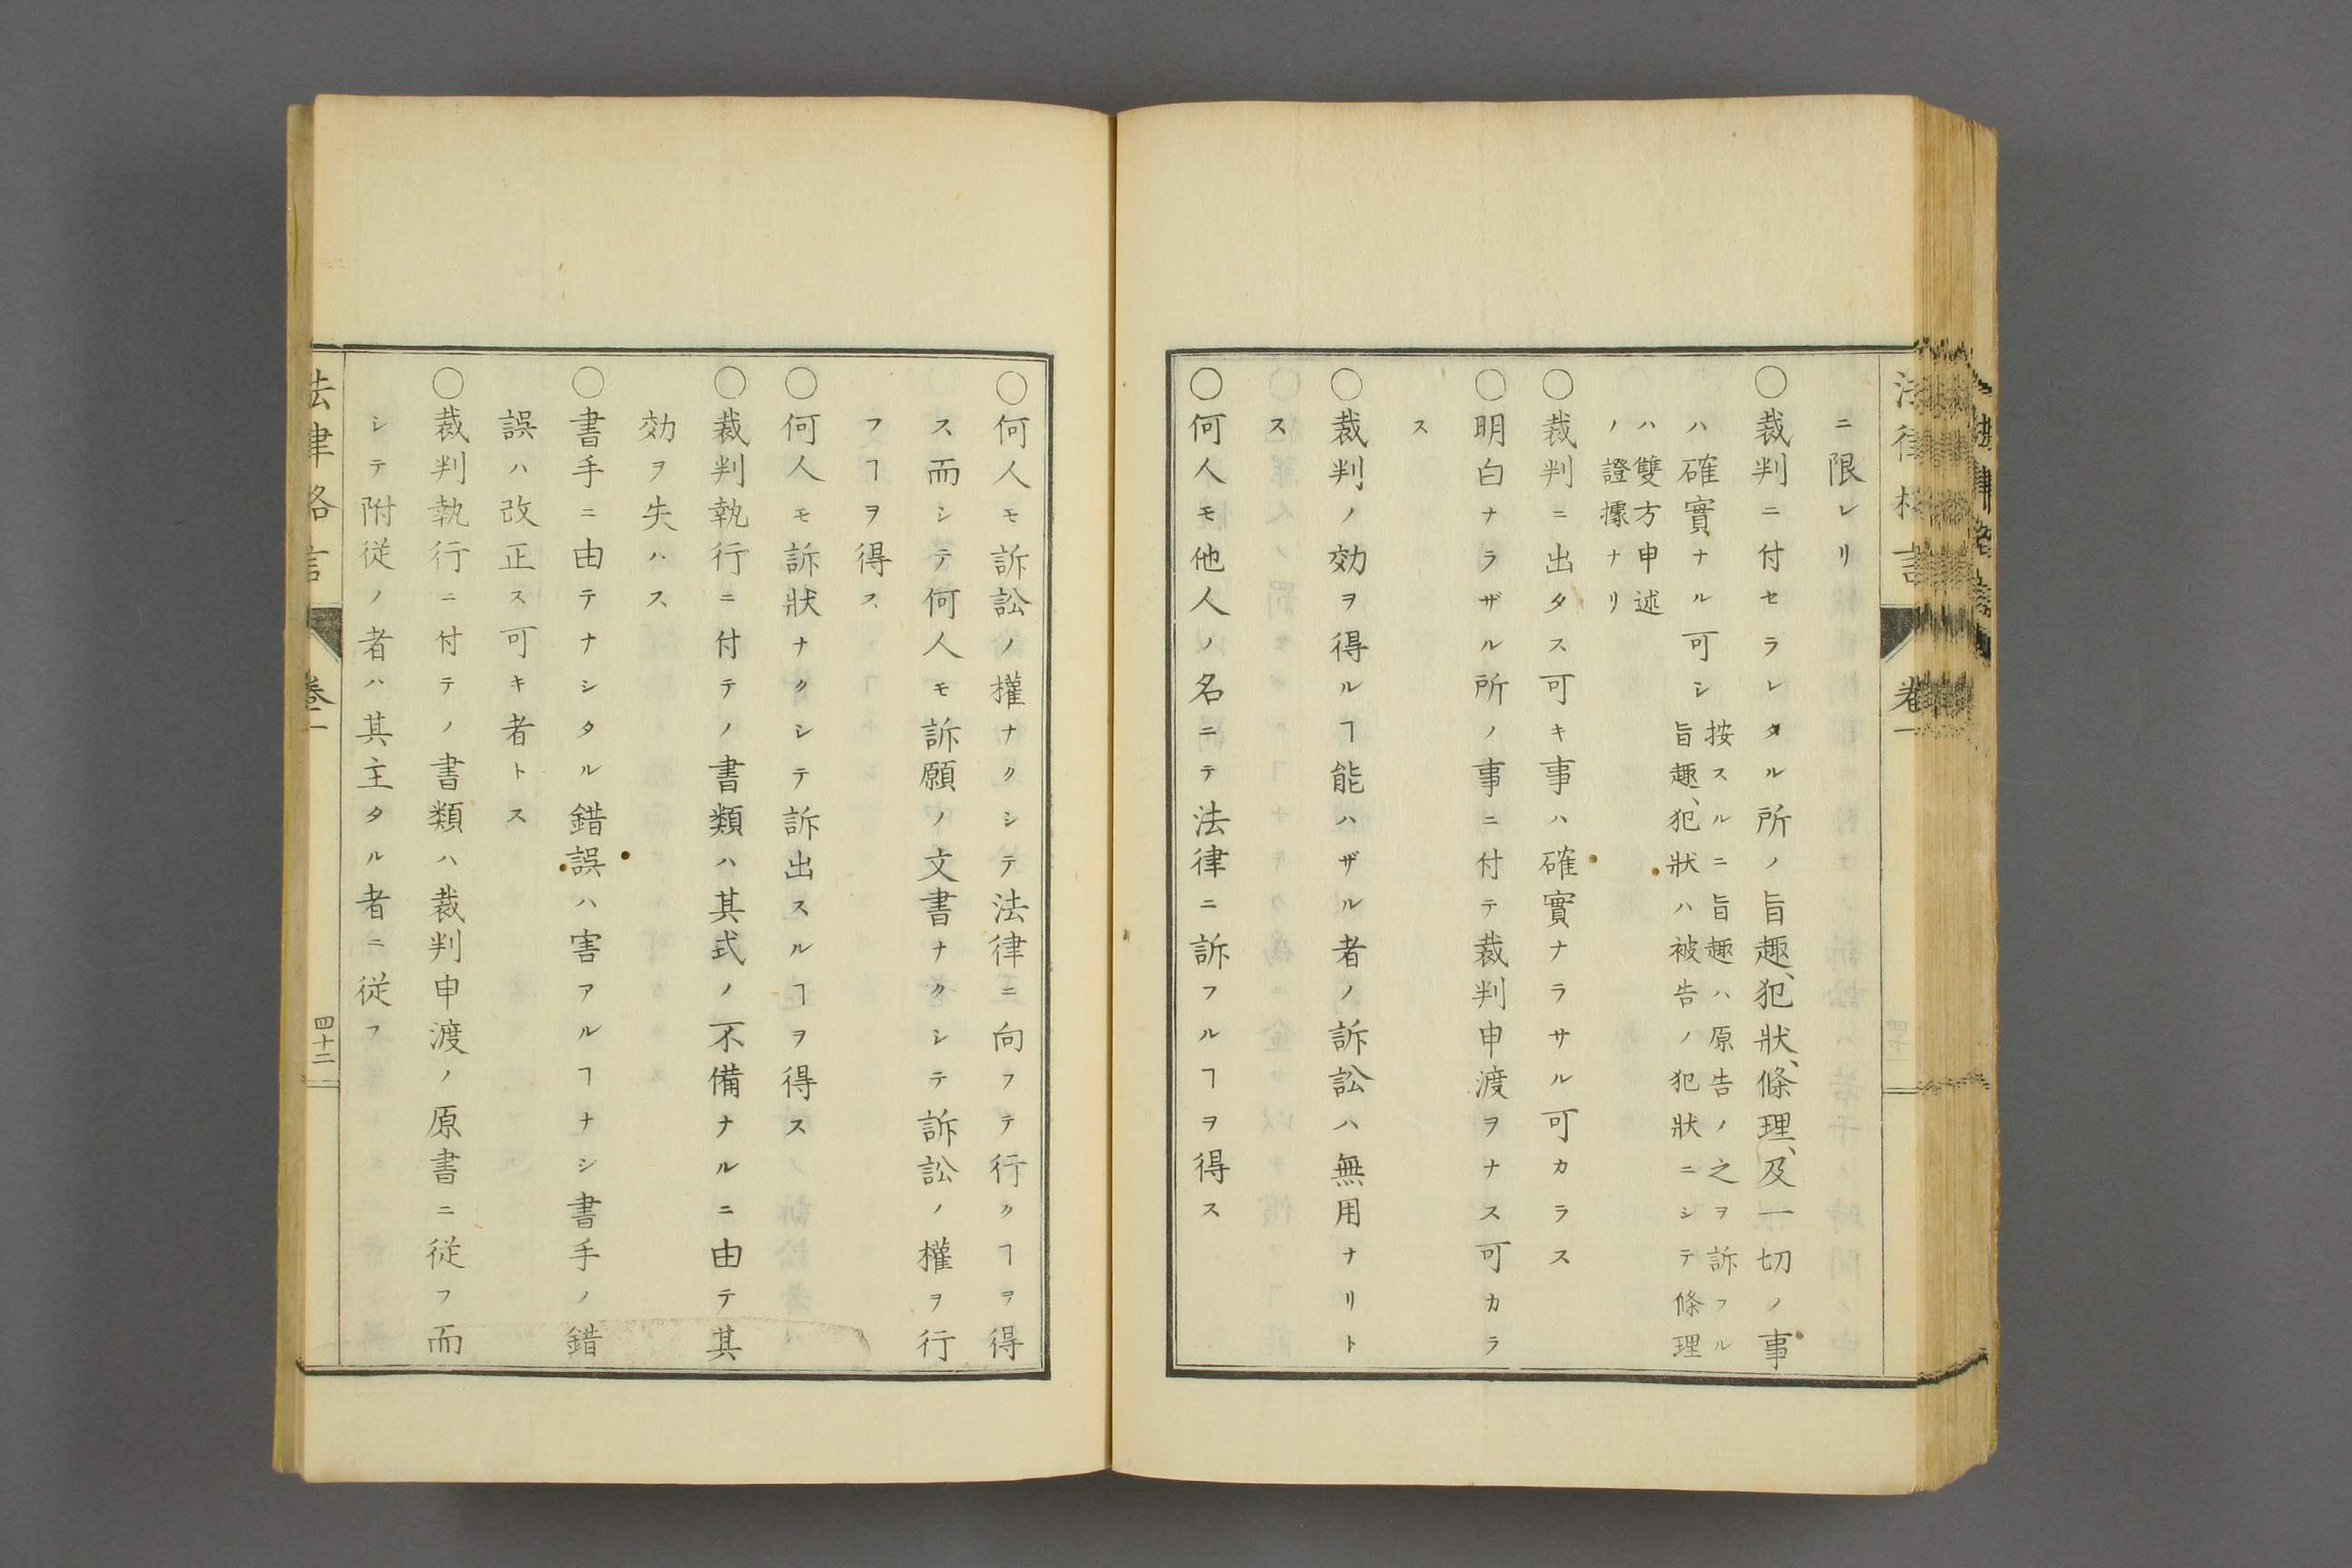 ニ限レリ
〇裁判ニ付セラレタル所ノ旨趣、犯狀、條理、及一切ノ事
ハ確實ナル可シ
按スルニ旨趣ハ原告ノ之ヲ訴フル
旨趣、犯狀ハ被告ノ犯狀ニシテ條理
ハ雙方申述
ノ證據ナリ
〇裁判ニ出タス可キ事ハ確實ナラサル可カラス
〇明白ナラザル所ノ事ニ付テ裁判申渡ヲナス可カラ
ス
〇裁判ノ効ヲ得ルヿ能ハザル者ノ訴訟ハ無用ナリト
ス
〇何人モ他人ノ名ニテ法律ニ訴フルヿヲ得ス
〇何人モ訴訟ノ權ナクシテ法律ニ向フテ行クヿヲ得
ス而シテ何人モ訴願ノ文書ナクシテ訴訟ノ權ヲ行
フヿヲ得ス
〇何人モ訴狀ナクシテ訴出スルヿヲ得ス
〇裁判執行ニ付テノ書類ハ其式ノ不備ナルニ由テ其
効ヲ失ハス
〇書手ニ由テナシタル錯誤ハ害アルヿナシ書手ノ錯
誤ハ改正ス可キ者トス
〇裁判執行ニ付テノ書類ハ裁判申渡ノ原書ニ従フ而
シテ附従ノ者ハ其主タル者ニ従フ
法律格言
卷一
四十二